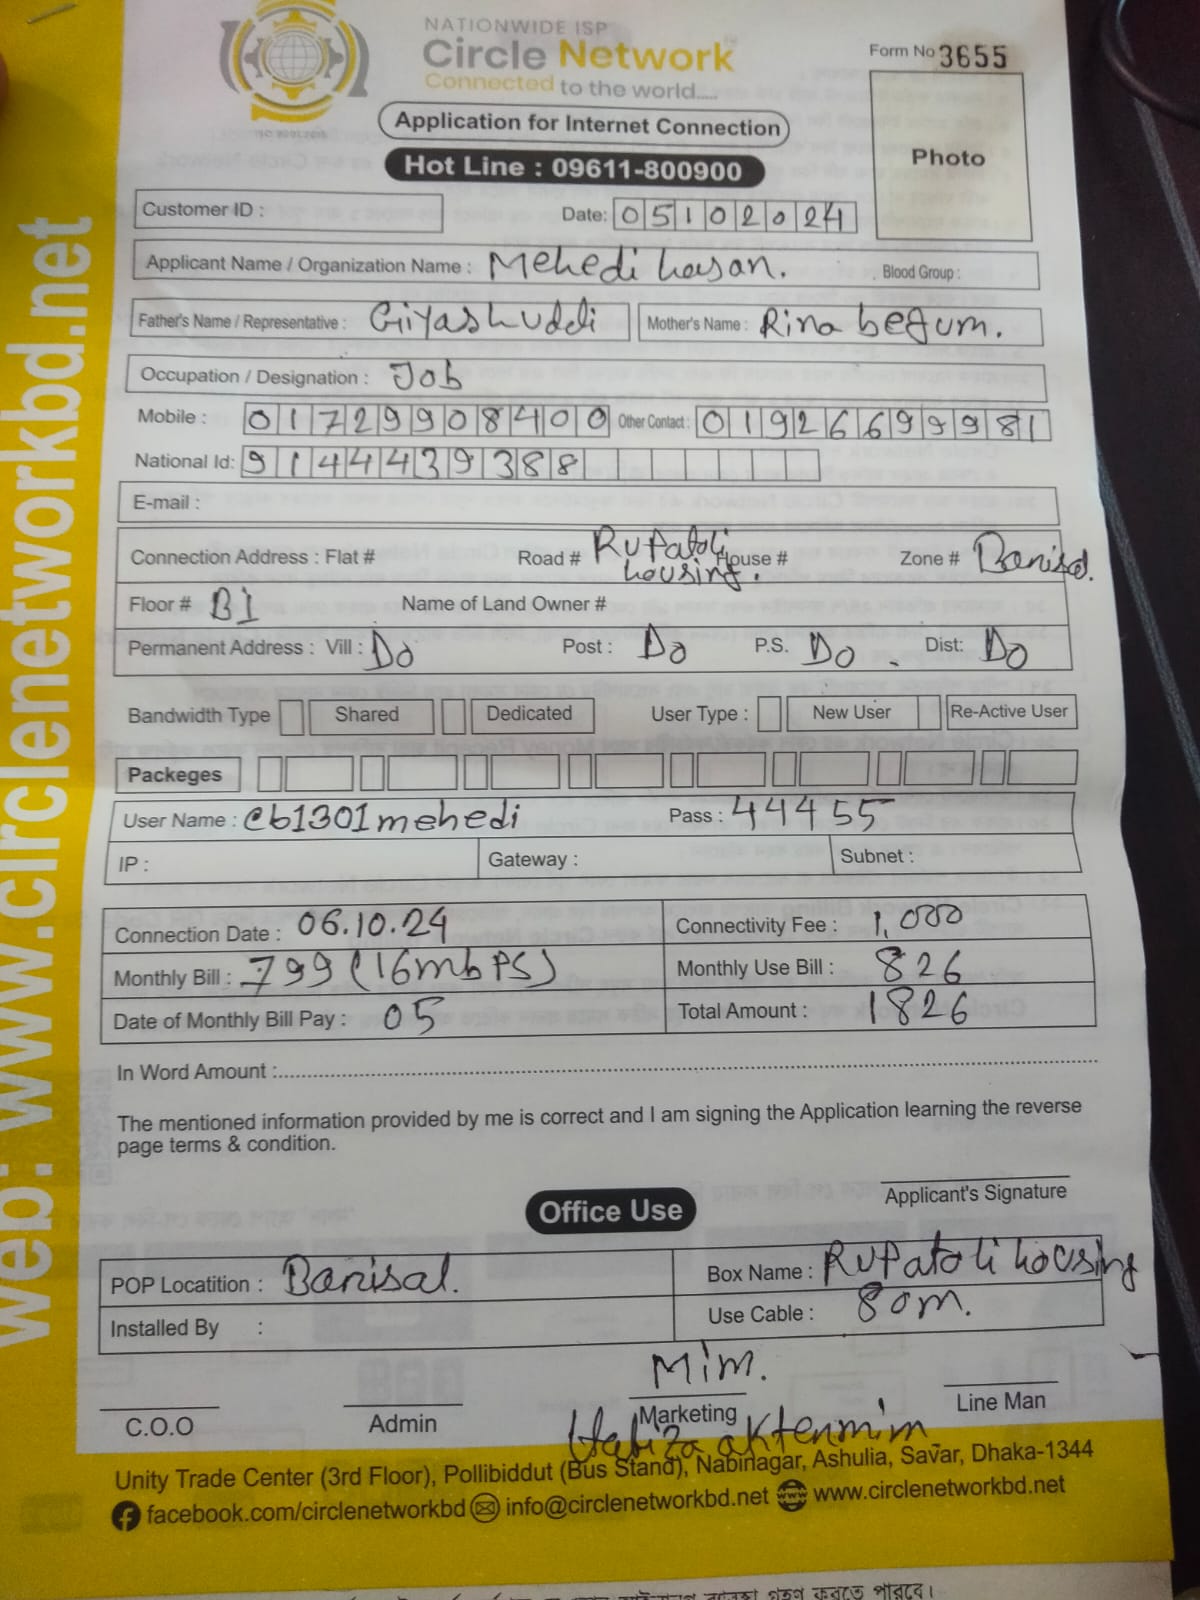 NATIONWIDE ISP
Circle Network
Connected to the world.....
Form No 3655
Application for Internet Connection
Hot Line : 09611-800900
Photo
Customer ID :
Date: 05102024
Applicant Name / Organization Name : Mehedi hasan. Blood Group :
Father's Name / Representative : Giyashuddi Mother's Name : Rina begum.
Occupation / Designation : Job
Mobile : 01729908400 Other Contact : 01926699981
National Id: 9144439388
E-mail :
Connection Address : Flat # Road # Rupatoli housing. House # Zone # Barisal.
Floor # B1 Name of Land Owner #
Permanent Address : Vill : Do Post : Do P.S. Do . Dist: Do
Bandwidth Type Shared Dedicated User Type : New User Re-Active User
Packeges
User Name : cb1301mehedi Pass : 44455
IP : Gateway : Subnet :
Connection Date : 06.10.24 Connectivity Fee : 1,000
Monthly Bill : 799 (16mbPS) Monthly Use Bill : 826
Date of Monthly Bill Pay : 05 Total Amount : 1826
In Word Amount :
The mentioned information provided by me is correct and I am signing the Application learning the reverse
page terms & condition.
Applicant's Signature
Office Use
POP Locatition : Barisal. Box Name : Rupatoli housing
Installed By : Use Cable : 80m.
Mim.
C.O.O Admin Marketing Line Man
Unity Trade Center (3rd Floor), Pollibiddut (Bus Stand), Nabinagar, Ashulia, Savar, Dhaka-1344
facebook.com/circlenetworkbd info@circlenetworkbd.net www.circlenetworkbd.net
web: www.circlenetworkbd.net